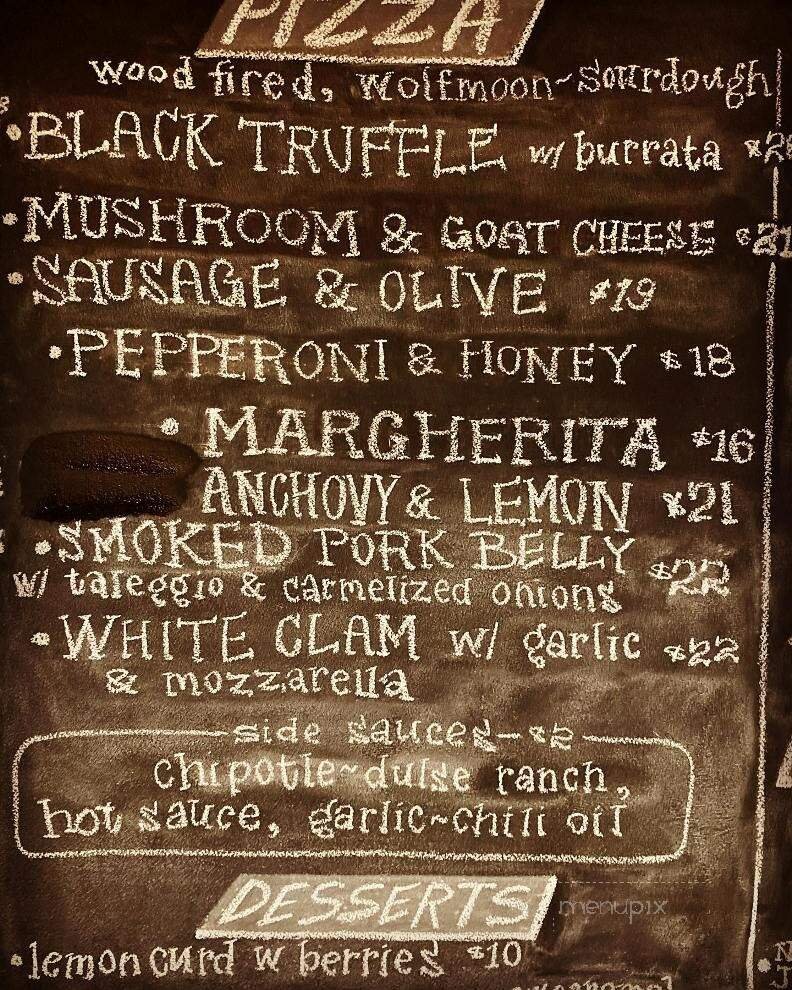 PIZZA
wood fired, wolfmoon~sourdough
•BLACK TRUFFLE w/ burrata
•MUSHROOM & GOAT CHEESE $21
•SAUSAGE & OLIVE $19
•PEPPERONI & HONEY $18
• MARGHERITA $16
ANCHOVY & LEMON $21
•SMOKED PORK BELLY $22
w/ taleggio & carmelized onions
•WHITE CLAM w/ garlic $22
& mozzarella
side sauces-$2
chipotle~dulse ranch,
hot sauce, garlic~chili oil
DESSERTS
menupix
•lemon curd w berries $10